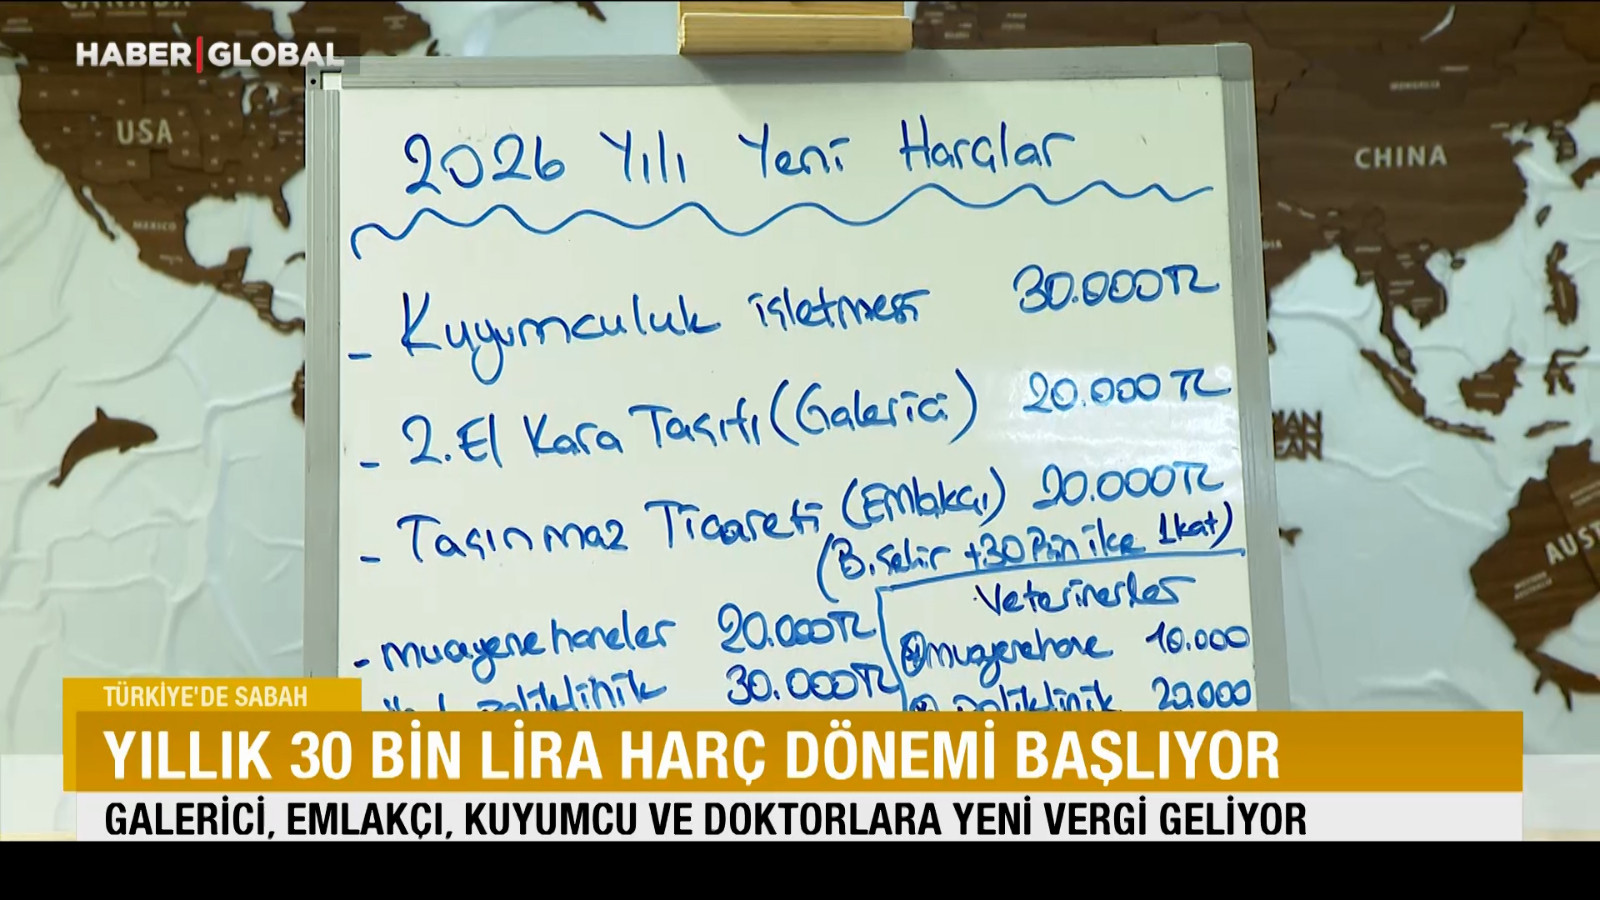 CANADA
HABER|GLOBAL
USA
MEXICO
MONGOLIA
CHINA
2026 Yılı Yeni Harçlar
- Kuyumculuk işletmesi 30.000TL
- 2.El Kara Taşıtı (Galerici) 20.000 TL
- Taşınmaz Ticareti (Emlakçı) 20.000TL
(B.Şehir +30 Bin ilçe 1kat)
- muayenehaneler 20.000TL
poliklinik 30.000TL
Veterinerler
muayenehane 10.000
poliklinik 20.000
TÜRKİYE'DE SABAH
YILLIK 30 BİN LİRA HARÇ DÖNEMİ BAŞLIYOR
GALERİCİ, EMLAKÇI, KUYUMCU VE DOKTORLARA YENİ VERGİ GELİYOR